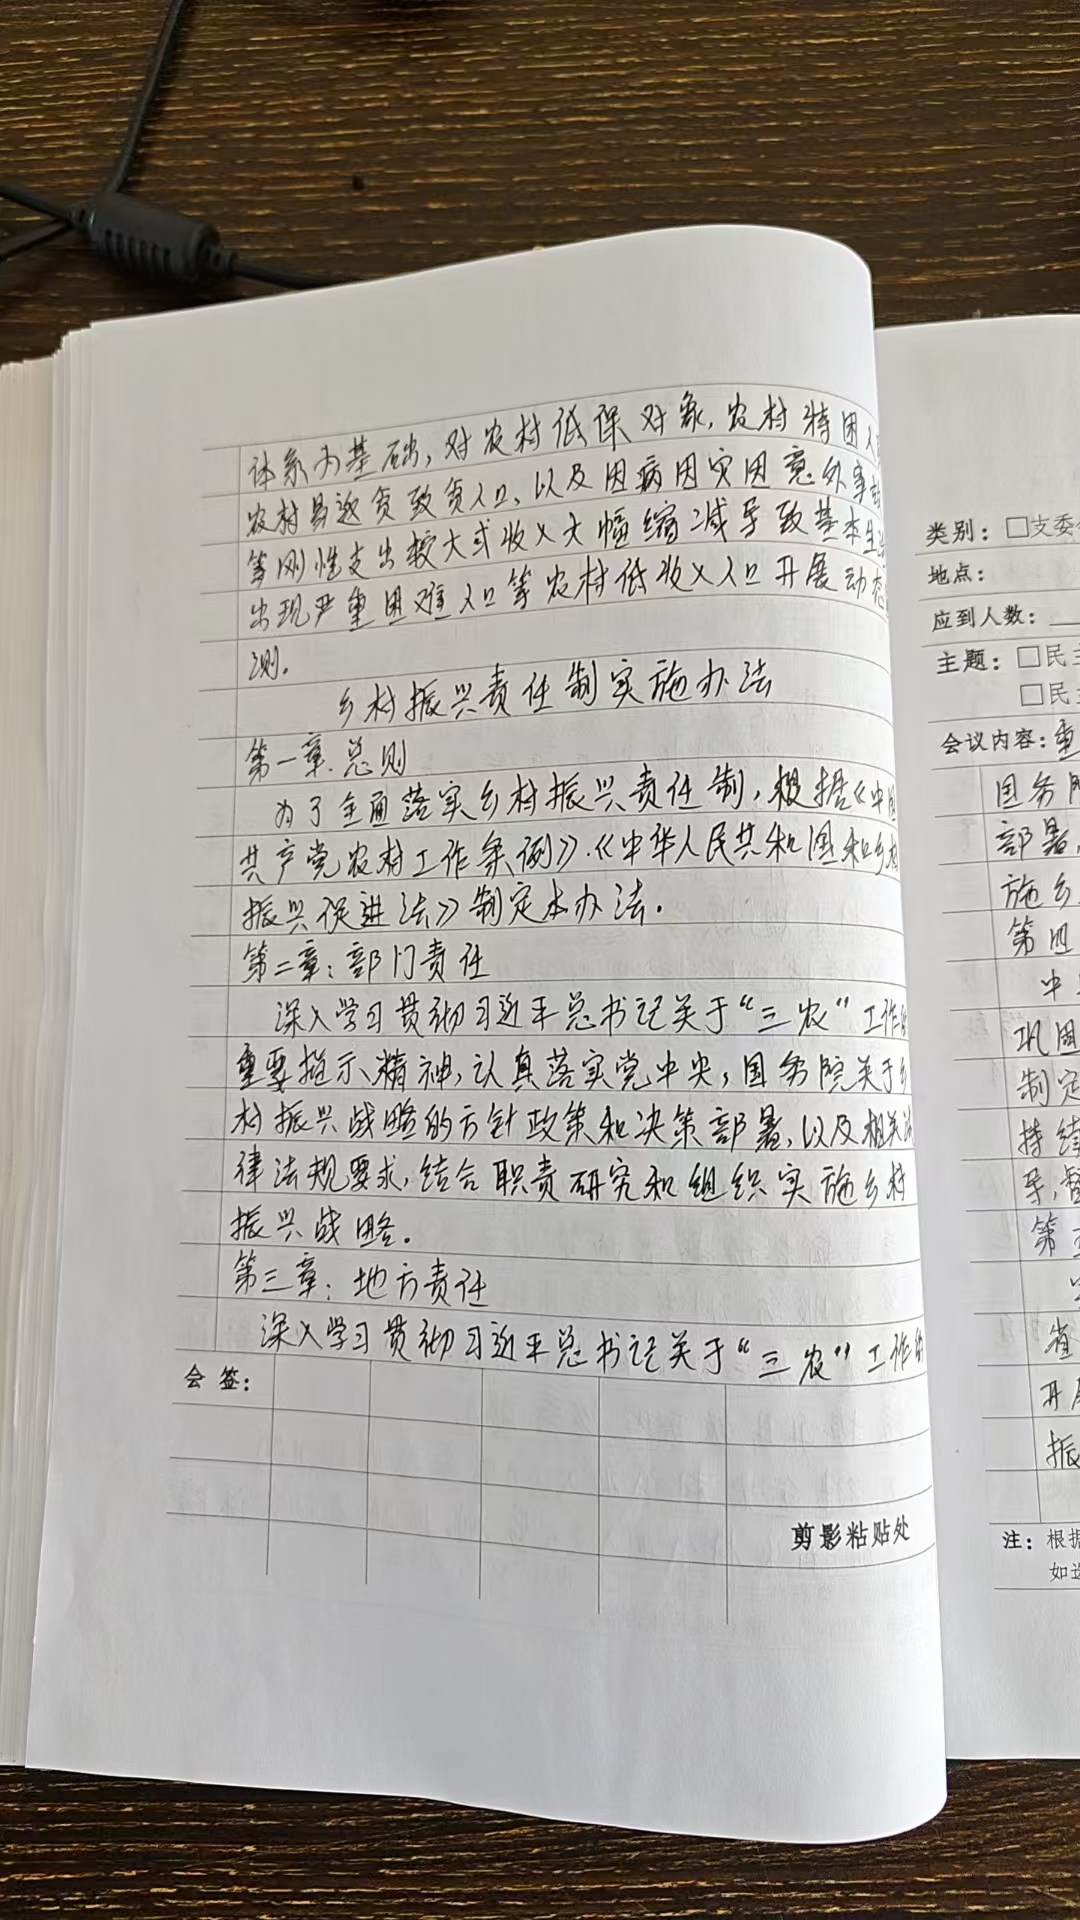 体系为基础,对农村低保对象,农村特困人
农村易返贫致贫人口,以及因病因灾因意外事故
等刚性支出较大或收入大幅缩减导致基本生活
出现严重困难人口等农村低收入人口开展动态
测。
乡村振兴责任制实施办法
第一章.总则
为了全面落实乡村振兴责任制,根据《中国
共产党农村工作条例》.《中华人民共和国和乡村
振兴促进法》制定本办法.
第二章:部门责任
深入学习贯彻习近平总书记关于“三农”工作的
重要指示精神,认真落实党中央,国务院关于乡
村振兴战略的方针政策和决策部署,以及相关法
律法规要求,结合职责研究和组织实施乡村
振兴战略.
第三章:地方责任
深入学习贯彻习近平总书记关于“三农”工作的
会签:
剪影粘贴处
类别:□支委
地点:
应到人数:
主题:□民主
□民主
会议内容:重
国务院
部署,
施乡
第四
中
巩固
制定
持续
导,督
第五
省
开展
振
注:根据
如选